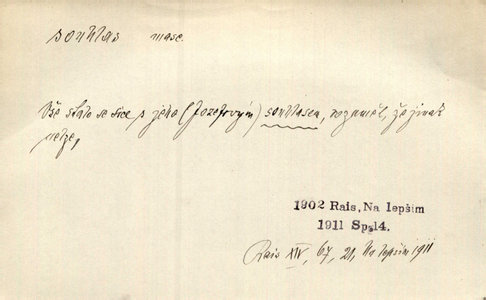 souhlas masc.
Vše stalo se sice s jeho (Jozefovým) souhlasem, rozuměl, že jinak
nelze,
1902 Rais, Na lepším
1911 Sps14.
Rais XIV, 67, 21, Na lepším 1911